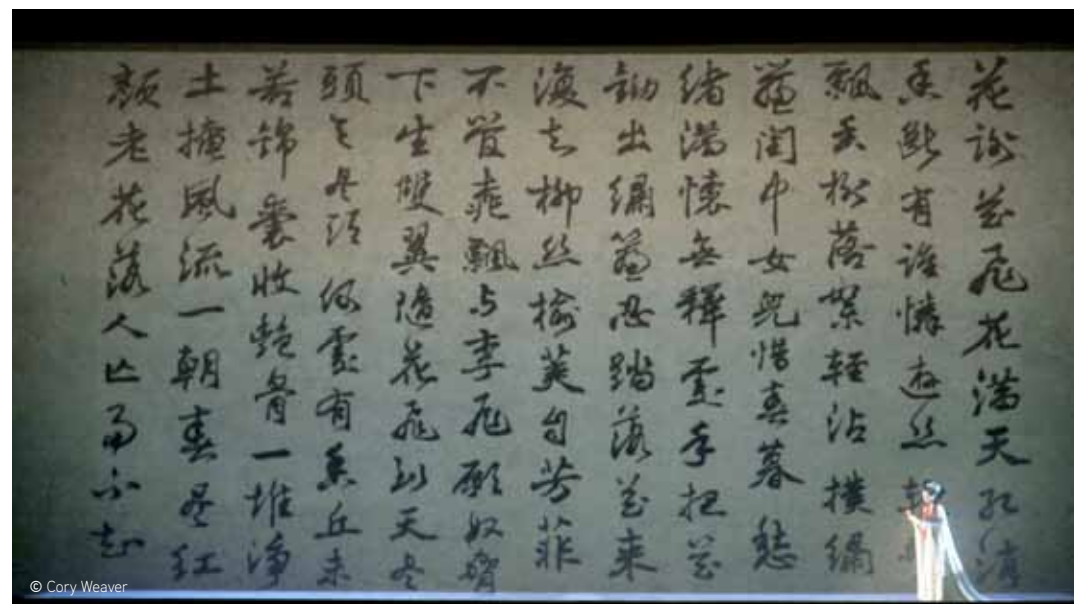 花謝花飛花滿天紅消
香斷有誰憐遊絲
飄香榭落絮輕沾撲繡
簾閨中女兒惜春暮愁
緒滿懷無釋處手把花
鋤出繡簾忍踏落花來
復去柳絲榆莢自芳菲
不管桃飄与李飛願奴脅
下生雙翼隨花飛到天尽
頭天尽頭何處有香丘未
若錦囊收艷骨一堆淨
土掩風流一朝春尽紅
顏老花落人亡兩不知
© Cory Weaver